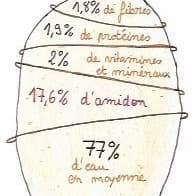 1,8% de fibres
1,9% de protéines
2% de vitamines
et minéraux
17,6% d'amidon
77%
d'eau
en moyenne